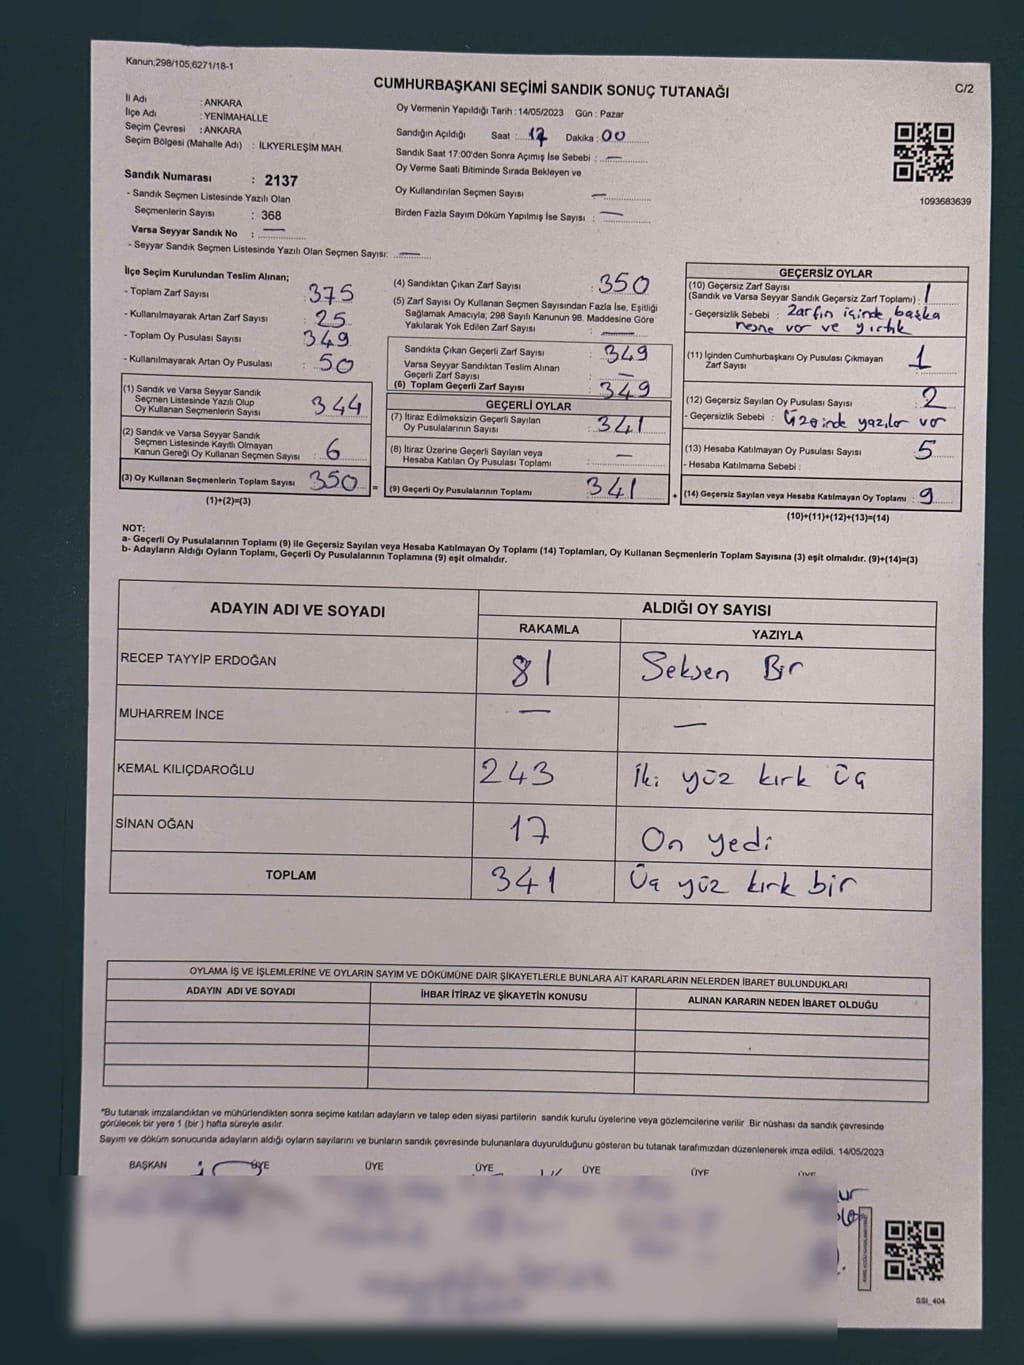 Kanun;298/105,6271/18-1
CUMHURBAŞKANI SEÇİMİ SANDIK SONUÇ TUTANAĞI
C/2
İl Adı : ANKARA
İlçe Adı : YENİMAHALLE
Seçim Çevresi : ANKARA
Seçim Bölgesi (Mahalle Adı) : İLKYERLEŞİM MAH.
Sandık Numarası : 2137
- Sandık Seçmen Listesinde Yazılı Olan
Seçmenlerin Sayısı : 368
Varsa Seyyar Sandık No : —
- Seyyar Sandık Seçmen Listesinde Yazılı Olan Seçmen Sayısı: —
Oy Vermenin Yapıldığı Tarih : 14/05/2023 Gün : Pazar
Sandığın Açıldığı Saat : 17 Dakika : 00
Sandık Saat 17:00'den Sonra Açımış İse Sebebi : —
Oy Verme Saati Bitiminde Sırada Bekleyen ve
Oy Kullandırılan Seçmen Sayısı —
Birden Fazla Sayım Döküm Yapılmış İse Sayısı : —
1093683639
İlçe Seçim Kurulundan Teslim Alınan;
- Toplam Zarf Sayısı : 375
- Kullanılmayarak Artan Zarf Sayısı : 25
- Toplam Oy Pusulası Sayısı : 349
- Kullanılmayarak Artan Oy Pusulası : 50
(1) Sandık ve Varsa Seyyar Sandık
Seçmen Listesinde Yazılı Olup
Oy Kullanan Seçmenlerin Sayısı : 344
(2) Sandık ve Varsa Seyyar Sandık
Seçmen Listesinde Kayıtlı Olmayan
Kanun Gereği Oy Kullanan Seçmen Sayısı : 6
(3) Oy Kullanan Seçmenlerin Toplam Sayısı : 350 =
(1)+(2)=(3)
(4) Sandıktan Çıkan Zarf Sayısı : 350
(5) Zarf Sayısı Oy Kullanan Seçmen Sayısından Fazla İse, Eşitliği
Sağlamak Amacıyla; 298 Sayılı Kanunun 98. Maddesine Göre
Yakılarak Yok Edilen Zarf Sayısı : —
Sandıkta Çıkan Geçerli Zarf Sayısı : 349
Varsa Seyyar Sandıktan Teslim Alınan
Geçerli Zarf Sayısı : —
(6) Toplam Geçerli Zarf Sayısı : 349
GEÇERLİ OYLAR
(7) İtiraz Edilmeksizin Geçerli Sayılan
Oy Pusulalarının Sayısı : 341
(8) İtiraz Üzerine Geçerli Sayılan veya
Hesaba Katılan Oy Pusulası Toplamı : —
(9) Geçerli Oy Pusulalarının Toplamı : 341 +
GEÇERSİZ OYLAR
(10) Geçersiz Zarf Sayısı
(Sandık ve Varsa Seyyar Sandık Geçersiz Zarf Toplamı) : 1
- Geçersizlik Sebebi : Zarfın içinde başka
nesne var ve yırtık
(11) İçinden Cumhurbaşkanı Oy Pusulası Çıkmayan
Zarf Sayısı : 1
(12) Geçersiz Sayılan Oy Pusulası Sayısı : 2
- Geçersizlik Sebebi : Üzerinde yazılar var
(13) Hesaba Katılmayan Oy Pusulası Sayısı : 5
- Hesaba Katılmama Sebebi :
(14) Geçersiz Sayılan veya Hesaba Katılmayan Oy Toplamı : 9
(10)+(11)+(12)+(13)=(14)
NOT:
a- Geçerli Oy Pusulalarının Toplamı (9) ile Geçersiz Sayılan veya Hesaba Katılmayan Oy Toplamı (14) Toplamları, Oy Kullanan Seçmenlerin Toplam Sayısına (3) eşit olmalıdır. (9)+(14)=(3)
b- Adayların Aldığı Oyların Toplamı, Geçerli Oy Pusulalarının Toplamına (9) eşit olmalıdır.
ADAYIN ADI VE SOYADI
ALDIĞI OY SAYISI
RAKAMLA YAZIYLA
RECEP TAYYİP ERDOĞAN 81 Seksen Bir
MUHARREM İNCE — —
KEMAL KILIÇDAROĞLU 243 İki yüz kırk üç
SİNAN OĞAN 17 On yedi
TOPLAM 341 Üç yüz kırk bir
OYLAMA İŞ VE İŞLEMLERİNE VE OYLARIN SAYIM VE DÖKÜMÜNE DAİR ŞİKAYETLERLE BUNLARA AİT KARARLARIN NELERDEN İBARET BULUNDUKLARI
ADAYIN ADI VE SOYADI İHBAR İTİRAZ VE ŞİKAYETİN KONUSU ALINAN KARARIN NEDEN İBARET OLDUĞU
*Bu tutanak imzalandıktan ve mühürlendikten sonra seçime katılan adayların ve talep eden siyasi partilerin sandık kurulu üyelerine veya gözlemcilerine verilir. Bir nüshası da sandık çevresinde
görülecek bir yere 1 (bir ) hafta süreyle asılır.
Sayım ve döküm sonucunda adayların aldığı oyların sayılarını ve bunların sandık çevresinde bulunanlara duyurulduğunu gösteren bu tutanak tarafımızdan düzenlenerek imza edildi. 14/05/2023
BAŞKAN ÜYE ÜYE ÜYE ÜYE ÜYE ÜYE
SSI_404